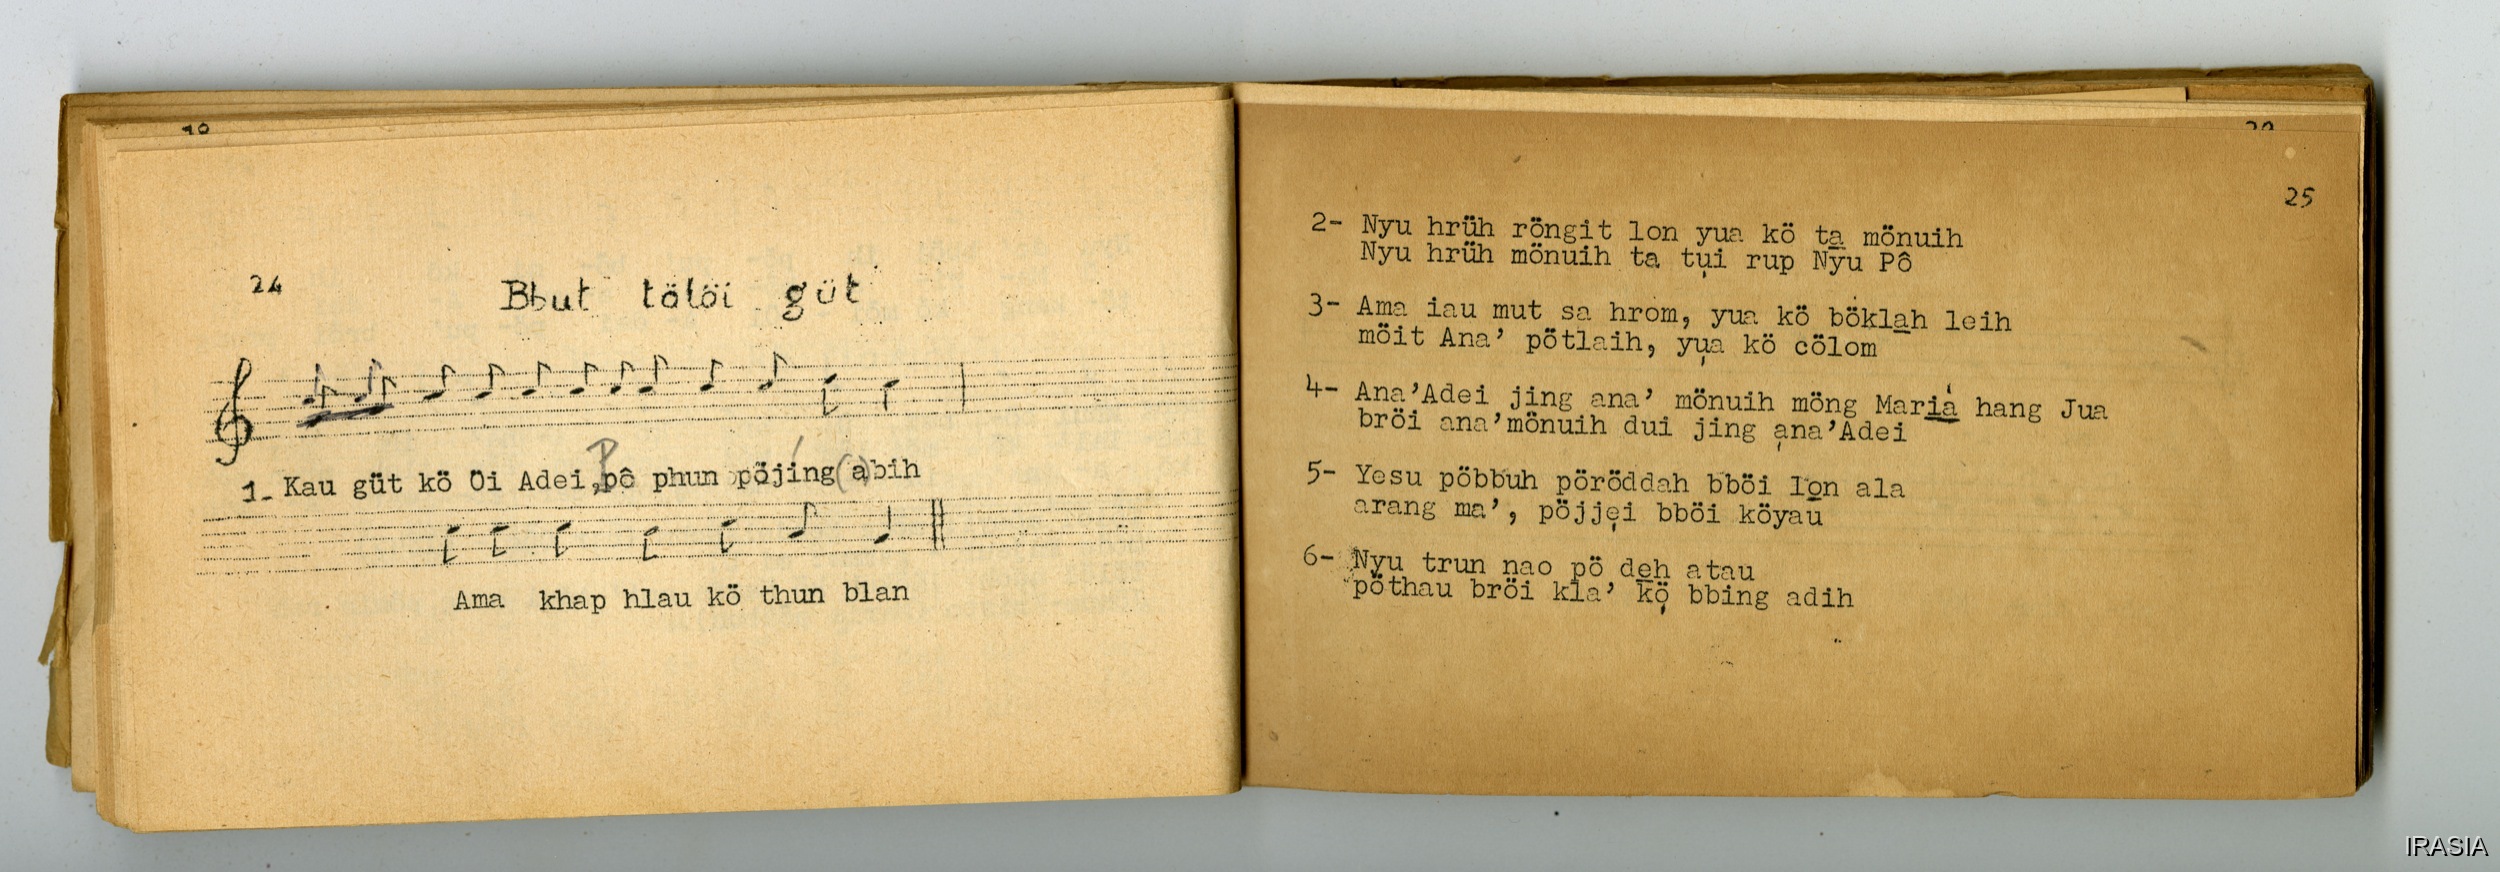 10
24
Bbut tölöi güt
1- Kau güt kö Öi Adei, pô phun pöjíng (a)bih
Ama khap hlau kö thun blan
25
2- Nyu hrüh röngit lon yua kö ta mönuih
Nyu hrüh mönuih ta tui rup Nyu Pô
3- Ama iau mut sa hrom, yua kö böklah leih
möit Ana' pötlaih, yua kö cölom
4- Ana'Adei jing ana' mönuih möng Maria hang Jua
bröi ana'mönuih dui jing ana'Adei
5- Yesu pöbbuh pöröddah bböi lon ala
arang ma', pöjjei bböi köyau
6- Nyu trun nao pö deh atau
pöthau bröi kla' kö bbing adih
IRASIA